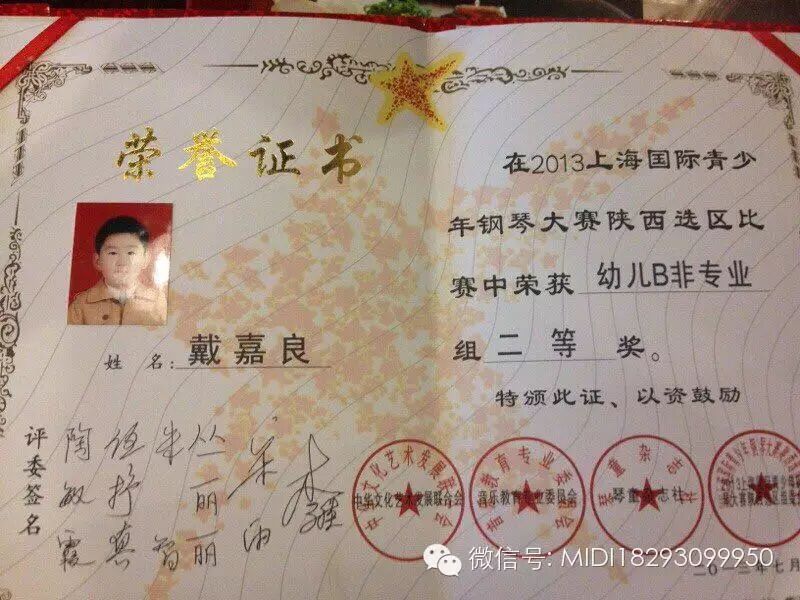 荣誉证书
姓 名：戴嘉良
评委签名
陶敏霞
在2013上海国际青少
年钢琴大赛陕西选区比
赛中荣获 幼儿B非专业
组 二 等 奖。
特颁此证、以资鼓励
中华文化艺术发展联合会
音乐教育专业委员会
琴童杂志社
二〇一三年七月
微信号: MIDI18293099950